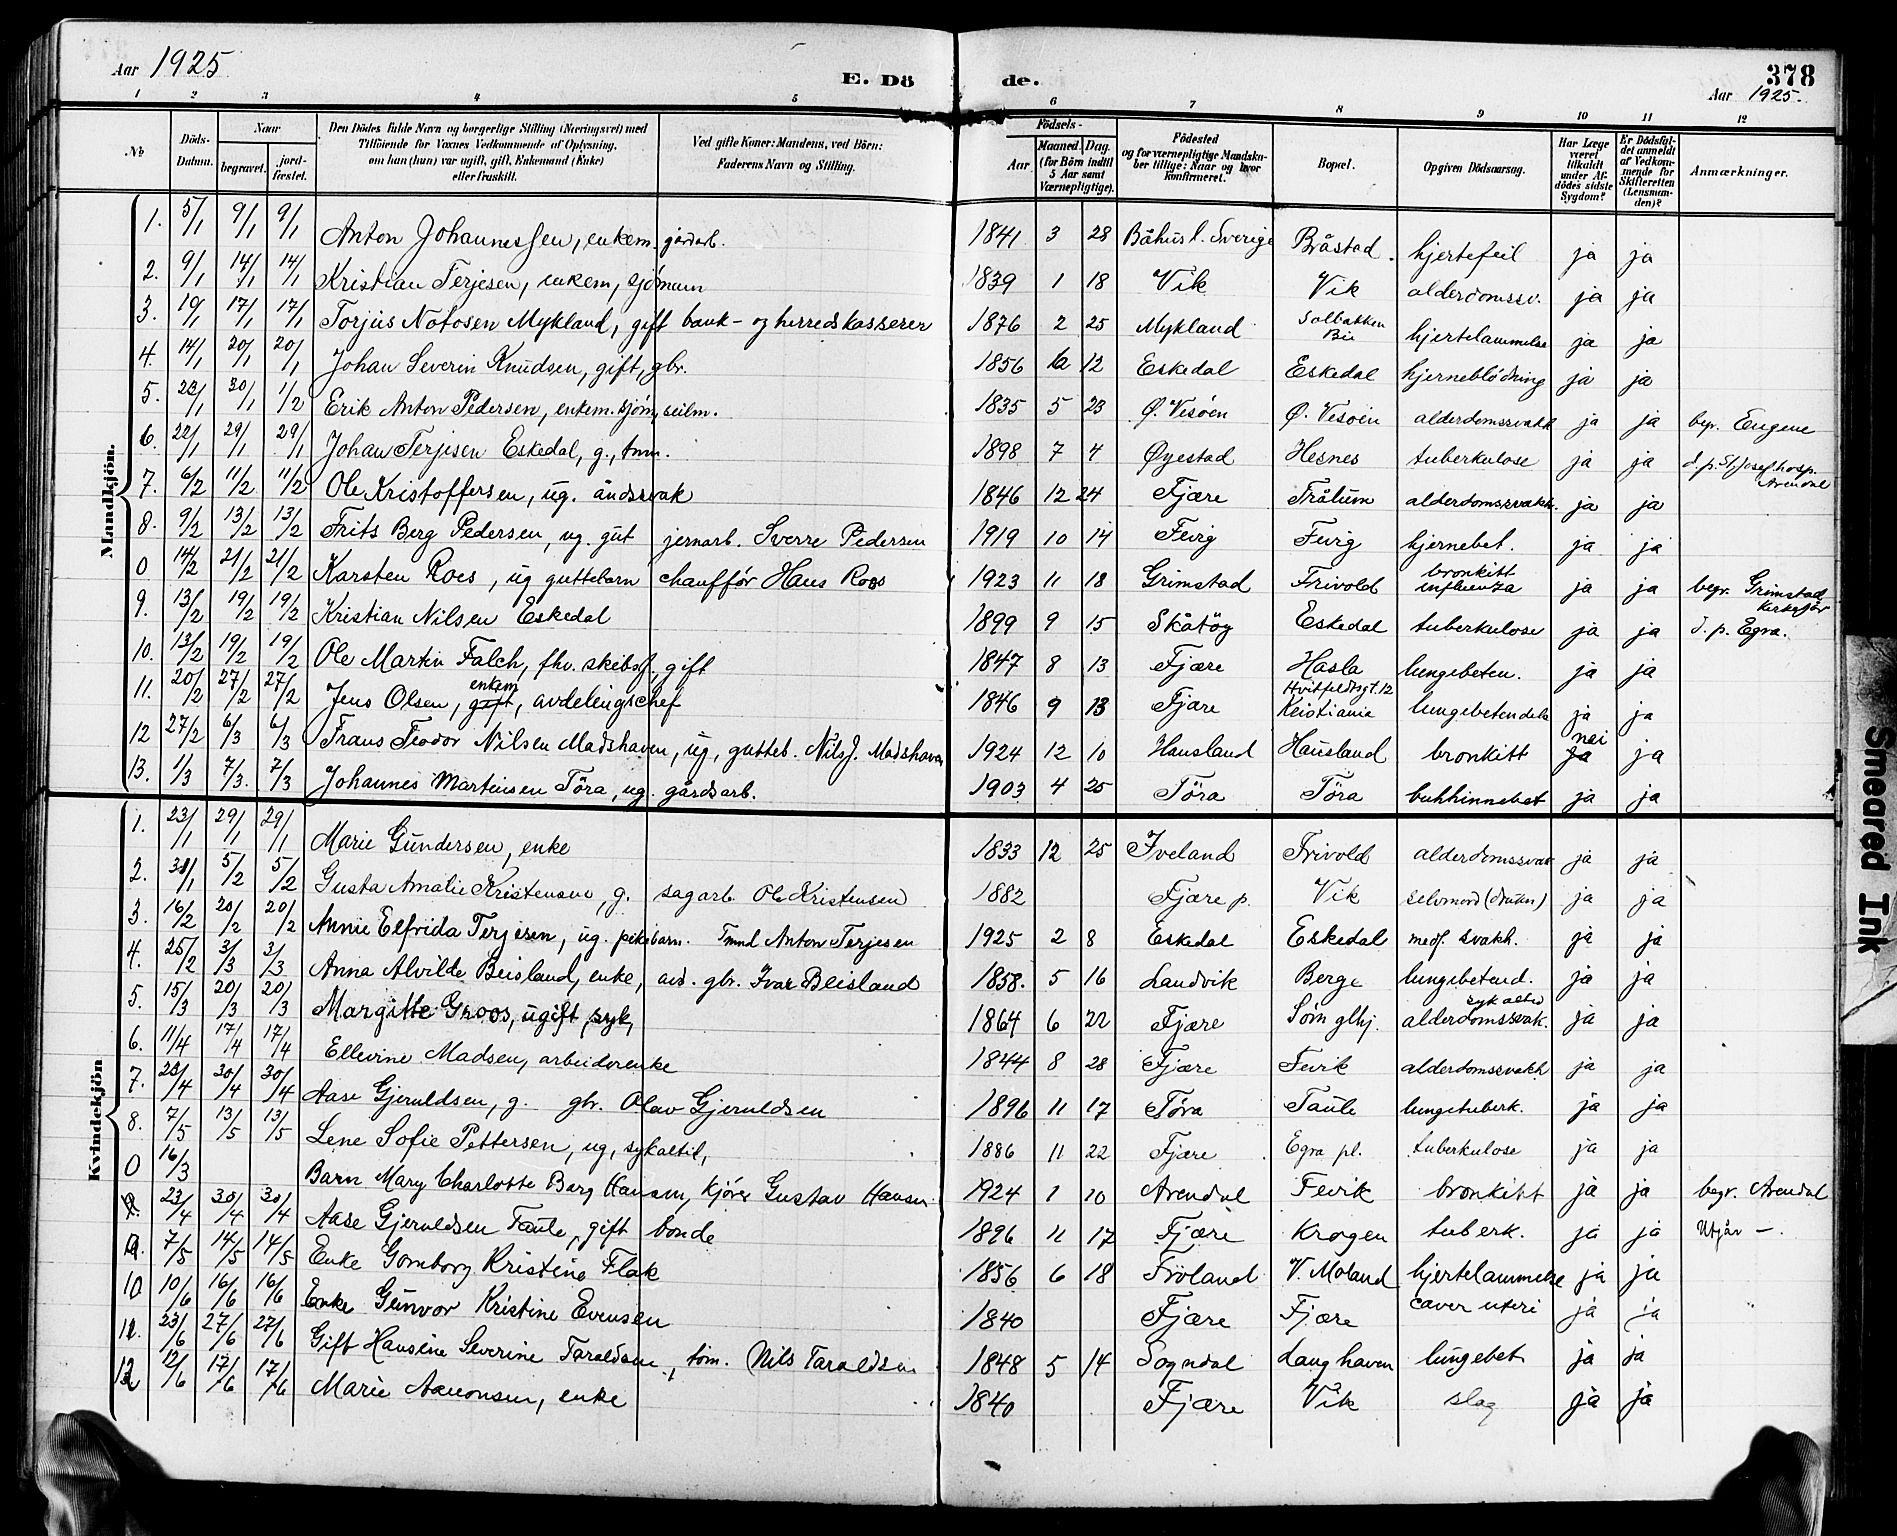 Aar 1925 E. Dö de. 378
Aar 1925.
1 2 3 4 5 6 7 8 9 10 11 12
№ Döds-Datum. Naar begravet. jordfæstet. Den Dödes fulde Navn og borgerlige Stilling (Næringsvei) med Tilföiende for Voxnes Vedkommende af Oplysning, om han (hun) var ugift, gift, Enkemand (Enke) eller fraskilt. Ved gifte Koner: Mandens, ved Börn: Faderens Navn og Stilling. Födsels- Aar Maaned. Dag. (for Börn indtil 5 Aar samt Værnepligtige). Födested og for værnepligtige Mandskaber tillige: Naar og hvor konfirmeret. Bopæl. Opgiven Dödsaarsag. Har Læge været tilkaldt under Afdödes sidste Sygdom? Er Dödsfaldet anmeldt af Vedkommende for Skifteretten (Lensmanden)? Anmærkninger.
Mandkjön.
1. 5/1 9/1 9/1 Anton Johannessen, enkem. gårdarb. 1841 3 28 Båhusl. Sverige Bråstad. hjertefeil ja ja
2. 9/1 14/1 14/1 Kristian Terjesen, enkem, sjömann 1839 1 18 Vik Vik alderdomssv. ja ja
3. 10/1 17/1 17/1 Torjus Notosen Mykland, gift bank- og herredskasserer 1876 2 25 Mykland Solbakken Bie hjertelammelse ja ja
4. 14/1 20/1 20/1 Johan Severin Knudsen, gift, gbr. 1856 12 Eskedal Eskedal hjerneblödning ja ja
5. 23/1 30/1 1/2 Erik Anton Pedersen, enkem. sjöm, seilm. 1835 5 23 Ø. Vesöen Ø. Vesöen alderdomssvakh ja ja begr. Eugene
6. 22/1 29/1 29/1 Johan Terjesen Eskedal, g., tmm. 1898 7 4 Øyestad Hesnes tuberkulose ja ja d. p. St. Josef hosp. Arendal
7. 6/2 11/2 11/2 Ole Kristoffersen, ug. åndssvak 1846 12 24 Fjære Trålum alderdomssvakh. ja ja
8. 9/2 13/2 13/2 Frits Berg Pedersen, ug. gut jernarb. Sverre Pedersen 1919 10 14 Fevig Fevig hjernebet. ja ja
0 14/2 21/2 21/2 Karsten Roes, ug guttebarn chaufför Hans Roos 1923 11 18 Grimstad Frivold bronkitt influenza ja ja begr. Grimstad kirkegår
9. 13/2 19/2 19/2 Kristian Nilsen Eskedal 1899 9 15 Skåtöy Eskedal tuberkulose ja ja d. p. Egra.
10. 13/2 19/2 19/2 Ole Martin Falch, fhv. skibsf., gift 1847 8 13 Fjære Hasla lungebeten. ja ja
11. 20/2 27/2 27/2 Jens Olsen, gift enkem, avdelingschef 1846 9 13 Fjære Hvitfeldtsgt. 12 Kristiania lungebetendelse ja ja
12 27/2 6/3 6/3 Frans Teodor Nilsen Madshaven, ug, gutteb. Nils J. Madshaven 1924 12 10 Hausland Hausland bronkitt ja nei ja
13. 1/3 7/3. 7/3 Johannes Martinsen Töra, ug. gårdsarb. 1903 4 25 Töra Töra bukhinnebet ja ja
Kvindekjön
1. 23/1 29/1 29/1 Marie Gundersen, enke 1833 12 25 Iveland Frivold alderdomssvak ja ja
2. 31/1 5/2 5/2 Gusta Amalie Kristensen, g. sagarb. Ole Kristensen 1882 Fjære p. Vik selvmord (drukn) ja ja
3. 16/2 20/2 20/2 Annie Elfrida Terjesen, ug. pikebarn. Tmd Anton Terjesen 1925 2 8 Eskedal Eskedal medf. svakh. ja ja
4. 25/2 3/3 3/3 Anna Alvilde Beisland, enke, avd. gbr. Ivar Beisland 1858. 5 16 Landvik Berge lungebetend. ja ja
5. 15/3 20/3 20/3 Margitte Groos, ugift, syk, 1864 6 22 Fjære Søm glhj. sykaltid alderdomssvak. ja ja
6. 11/4 17/4 17/4 Ellevine Madsen, arbeiderenke 1844 8 28 Fjære Fevik alderdomssvakh ja ja
7. 23/4 30/4 30/4 Aase Gjeruldsen, g. gbr. Olav Gjeruldsen 1896 11 17 Töra Taule lungetuberk. ja ja
8. 7/5 13/5 13/5 Lene Sofie Pettersen, ug, sykaltid, 1886 11 22 Fjære Egra pl. tuberkulose ja ja
0 16/3 Barn Mary Charlotte Berg Hansen, kjörer Gustav Hansen 1924 1 10 Arendal Fevik bronkitt ja ja begr. Arendal
23/4 30/4 30/4 Aase Gjeruldsen Taule, gift bonde 1896 11 17 Fjære Krogen tuberk. ja ja Utgår —.
9. 7/5 14/5 14/5 Enke Gomborg Kristine Flak 1856 6 18 Fröland V. Moland hjertelammelse ja ja
10 10/6 16/6 16/6 Enke Gunvor Kristine Evensen 1840 Fjære Fjære cancer uteri ja ja
11. 23/6 27/6 27/6 Gift Hansine Severine Taraldsen, töm. Nils Taraldsen 1848 5 14 Sogndal Langhaven lungebet ja ja
12 12/6 17/6 17/6 Marie Aanonsen, enke 1840 Fjære Vik slag ja ja
Smeared Ink